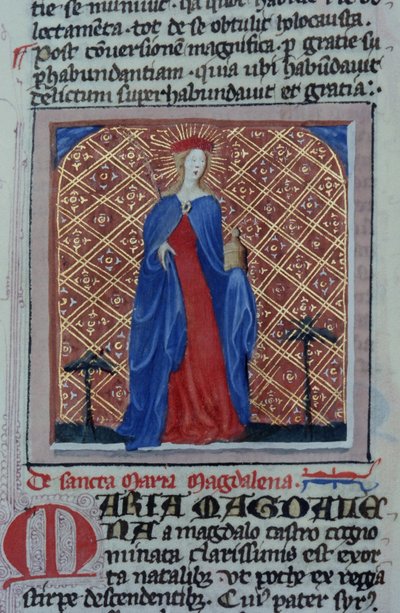 tie se muniuit. qia quot habuit
lectamēta. tot de se obtulit holocausta.
Post cōuersionem magnifica. p gratie su
phabundantiam. quia ubi habūdauit
delictum superhabundauit et gratia:.
De sancta maria magdalena.
MARIA MAGDALE
NA a magdalo castro cogno
minata clarissimis est exor
ta natalibꝫ. vt pote ex regia
stirpe descendentibꝫ. Cuiꝰ pater syrꝰ